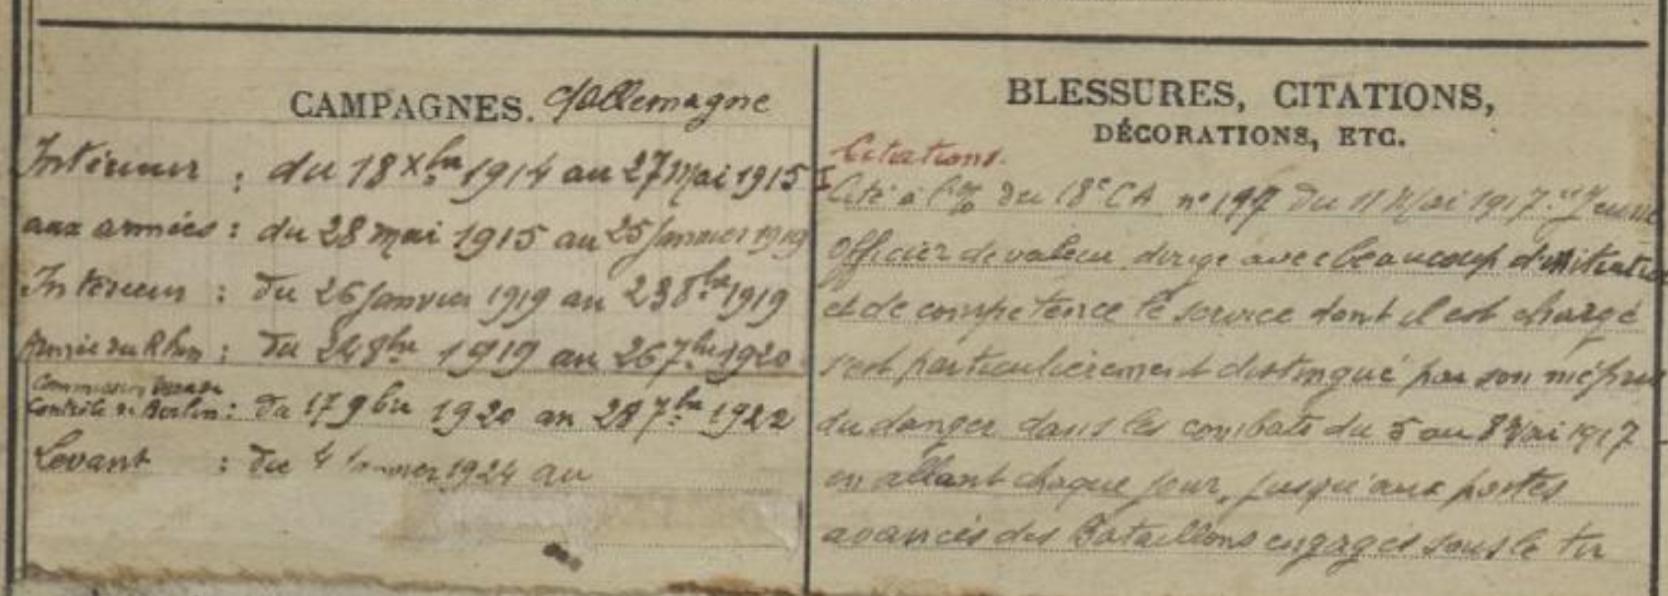 CAMPAGNES. d'Allemagne
Intérieur : du 18 Xbre 1914 au 27 Mai 1915
aux armées : du 28 mai 1915 au 25 Janvier 1919
Intérieur : du 26 Janvier 1919 au 23 8bre 1919
Armée du Rhin : du 24 8bre 1919 au 26 7bre 1920
Commission
Contrôle de Berlin : du 17 9bre 1920 au 28 7bre 1922
Levant : du 4 Janvier 1924 au
BLESSURES, CITATIONS,
DÉCORATIONS, ETC.
Citations.
I Cité à l'o/o du 18e CA n° 197 du 11 Mai 1917. "Jeune
Officier de valeur, dirige avec beaucoup d'initiative
et de compétence le service dont il est chargé
s'est particulièrement distingué par son mépris
du danger dans les combats du 5 au 8 Mai 1917
en allant chaque jour, jusqu'aux postes
avancés des Bataillons engagés sous le tir